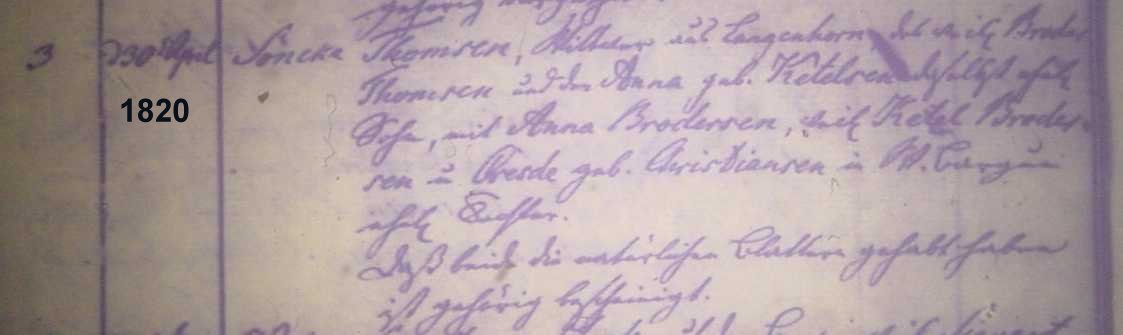 gehörig
3 d 30 April Söncke Thomsen, Wittwer aus Langenhorn, des weil Broder
1820
Thomsen und der Anna geb. Ketelsen daselbst ehel
Sohn, mit Anna Brodersen, weil Ketel Broder-
sen u. Gresde geb. Christiansen in W. Bargum
ehel Tochter.
Daß beide die natürlichen Blattern gehabt haben
ist gehörig bescheinigt.